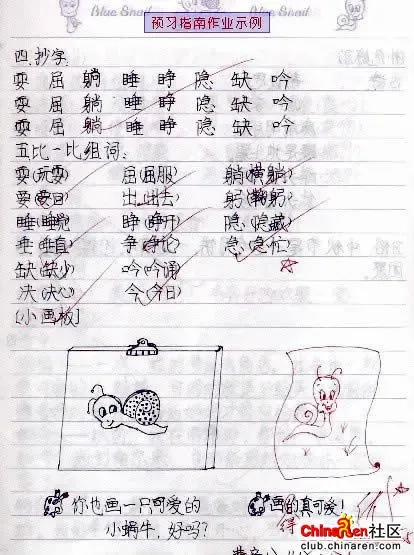 Blue Snail Blue Snail
预习指南作业示例
四.抄字:
耍 屈 躺 睡 睁 隐 缺 吟
耍 屈 躺 睡 睁 隐 缺 吟
耍 屈 躺 睡 睁 隐 缺 吟
五比一比组词:
耍(玩耍) 屈(屈服) 躺(横躺)
出(出去) 躬(鞠躬)
睡(睡觉) 睁(睁开) 隐(隐藏)
垂(垂直) 争(争论) 急(急忙)
缺(缺少) 吟(吟诵)
决(决心) 今(今日)
[小画板]
你也画一只可爱的
小蜗牛,好吗?
画的真可爱!
得
ChinaRen社区
club.chinaren.com